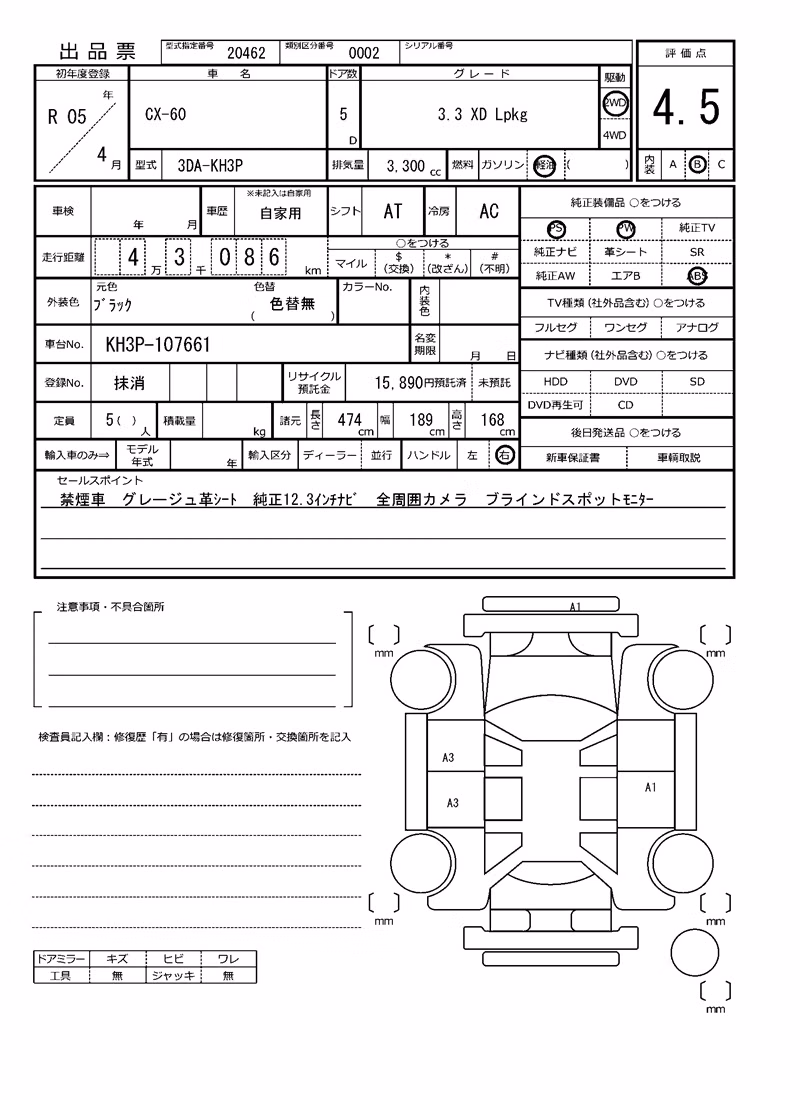 出品票 型式指定番号 20462 類別区分番号 0002 シリアル番号
初年度登録 車名 ドア数 グレード 駆動 評価点
R 05 年 4 月 CX-60 5 D 3.3 XD Lpkg 2WD 4WD 4.5
型式 3DA-KH3P 排気量 3,300 cc 燃料 ガソリン 軽油 ( ) 内装 A B C
車検 年 月 車歴 ※未記入は自家用 自家用 シフト AT 冷房 AC 純正装備品 ○をつける
PS PW 純正TV
走行距離 4 万 3 千 0 8 6 km ○をつける マイル $ (交換) * (改ざん) # (不明)
純正ナビ 革シート SR
純正AW エアB ABS
外装色 元色 ブラック 色替 ( 色替無 ) カラーNo. 内装色
TV種類 (社外品含む) ○をつける
フルセグ ワンセグ アナログ
車台No. KH3P-107661 名変期限 月 日
ナビ種類 (社外品含む) ○をつける
登録No. 抹消 リサイクル預託金 15,890円預託済 未預託
HDD DVD SD
DVD再生可 CD
定員 5( ) 人 積載量 kg 諸元 長さ 474 cm 幅 189 cm 高さ 168 cm
後日発送品 ○をつける
輸入車のみ⇒ モデル年式 年 輸入区分 ディーラー 並行 ハンドル 左 右
新車保証書 車輌取説
セールスポイント
禁煙車 グレージュ革シート 純正12.3インチナビ 全周囲カメラ ブラインドスポットモニター
注意事項・不具合箇所
A1
mm mm
検査員記入欄：修復歴「有」の場合は修復箇所・交換箇所を記入
A3
A1
A3
mm mm
ドアミラー キズ ヒビ ワレ
工具 無 ジャッキ 無
mm